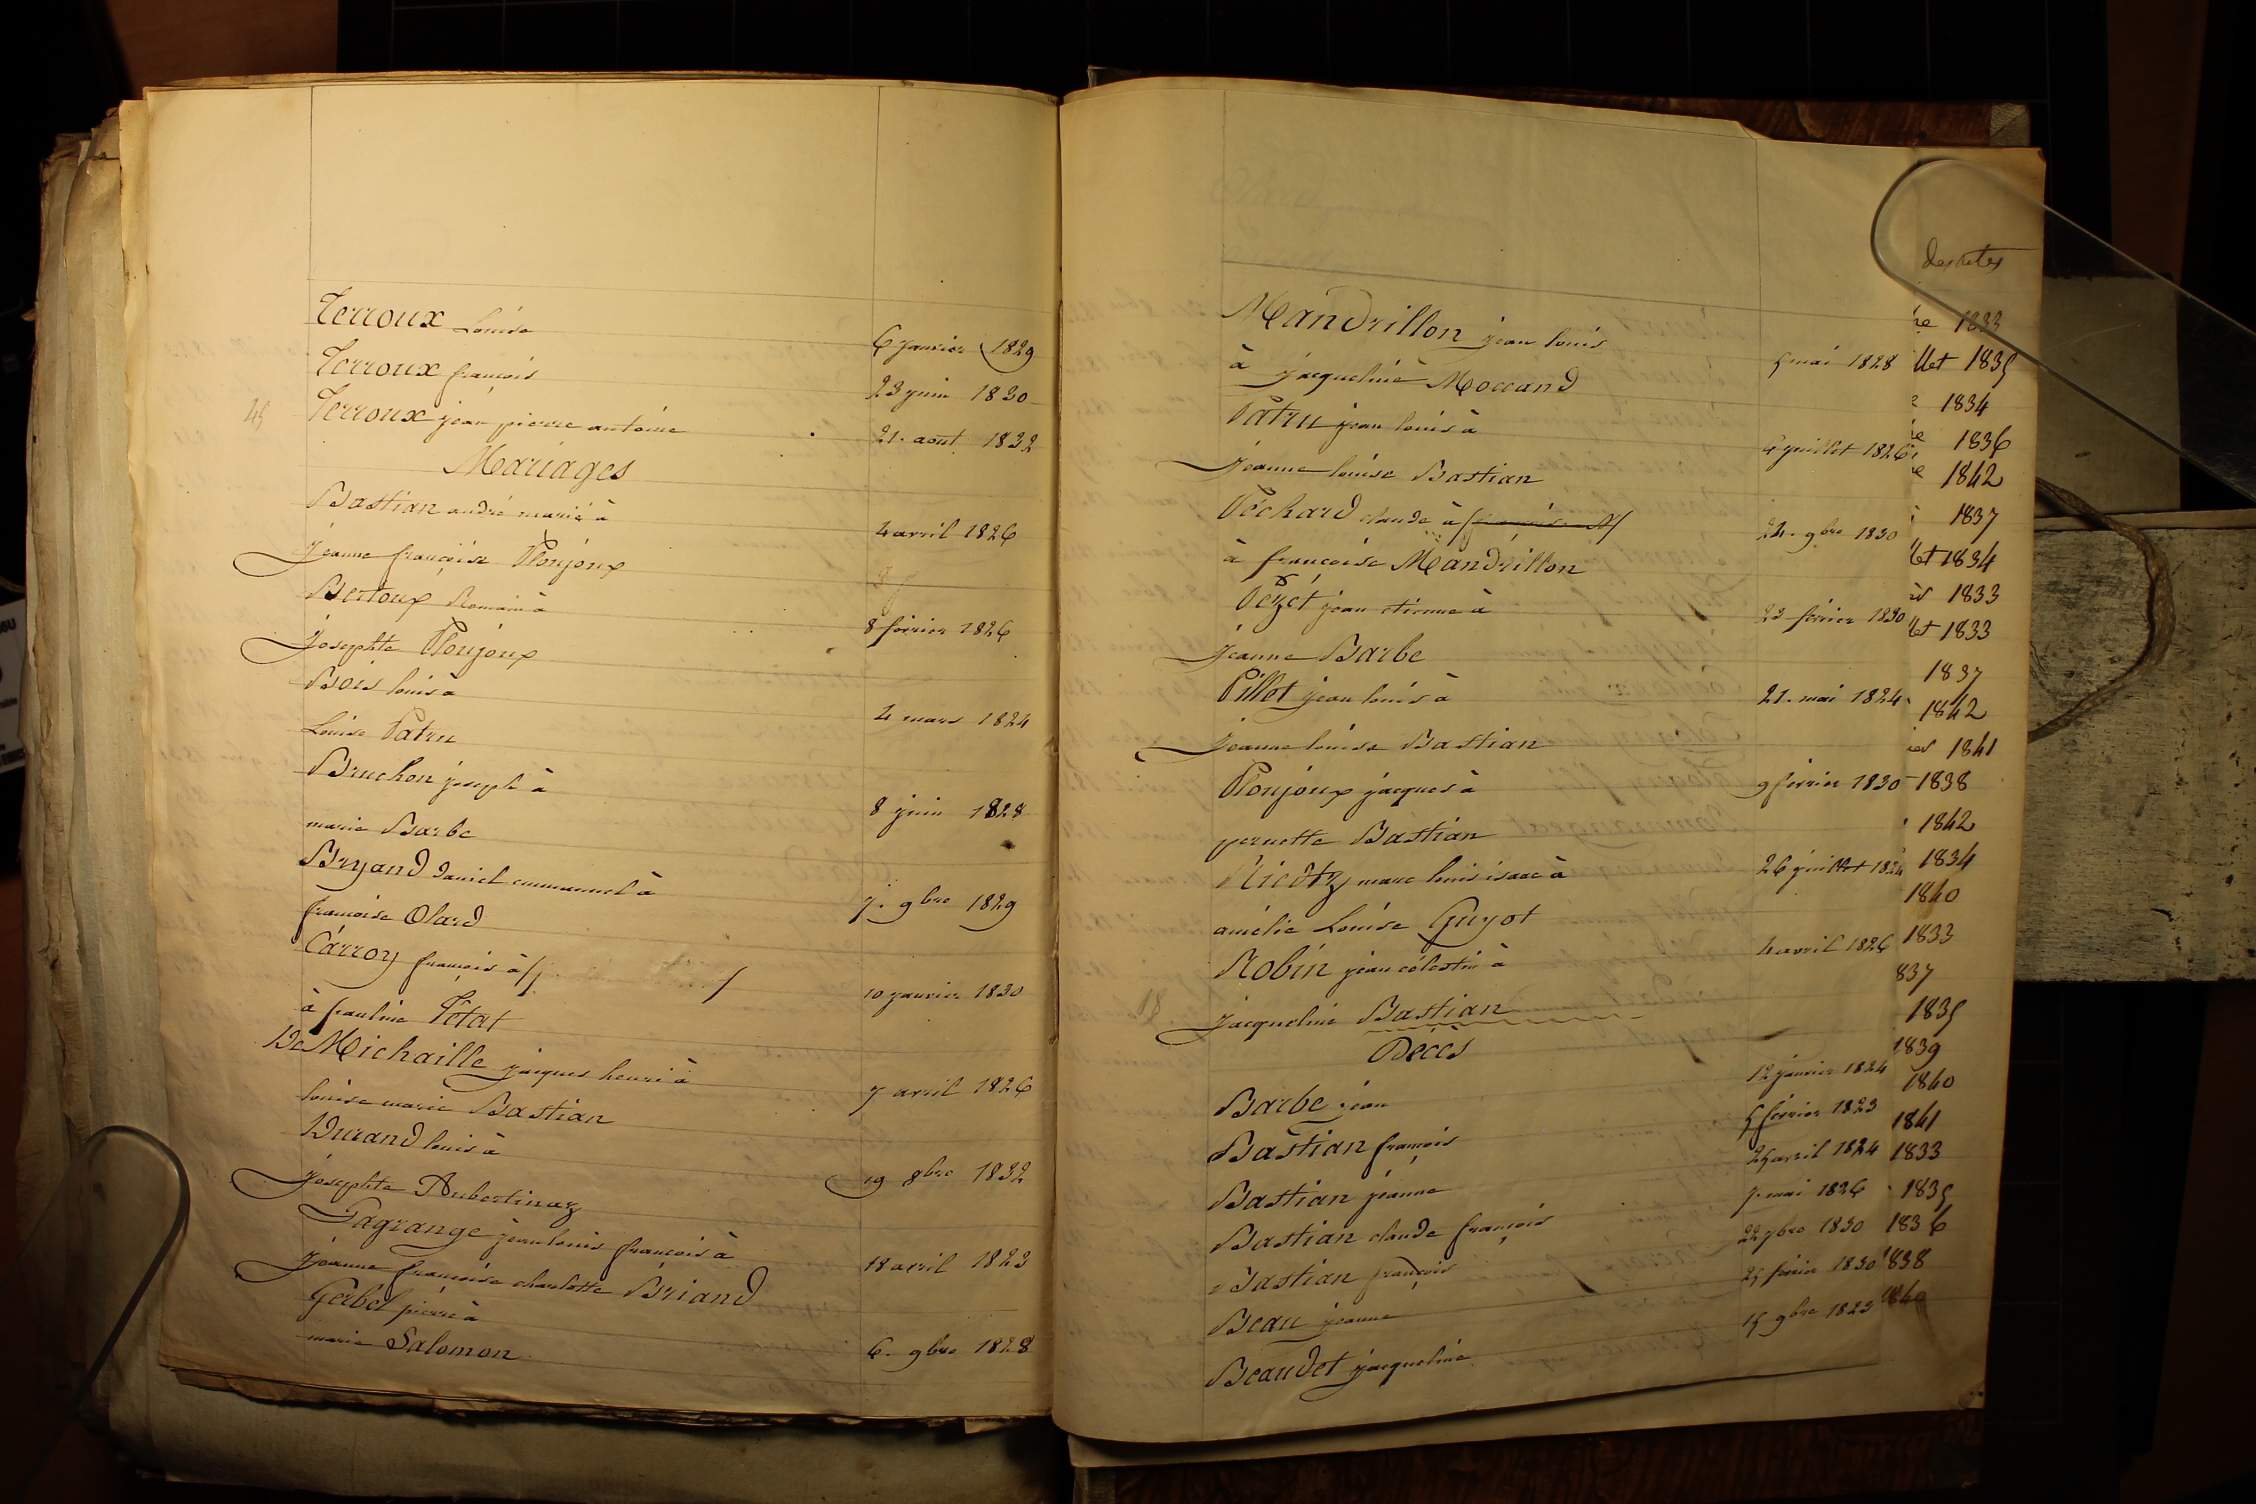 Terroux Louise 6 janvier 1829
Terroux françois 23 juin 1830
45 Terroux jean pierre antoine 21. aout 1832
Mariages
Bastian andré marié à 4 avril 1826
jeanne françoise Plonjoux
Bertoux Romain à 8 février 1826
josephte Plonjoux
Bois louis à 4 mars 1824
Louise Patru
Bruchon joseph à 8 juin 1828
marie Barbe
Bryand daniel emmanuel à 7. 9bre 1829
françoise Olard
Carroy françois à 10 janvier 1830
à Pétat
De Michaille jacques henri à 7 avril 1826
louise marie Bastian
Durand louis à 19 8bre 1832
josephte Aubertinaz
Lagrange jean louis françois à 18 avril 1823
jeanne françoise charlotte Briand
Gerbel pierre à 6. 9bre 1828
marie Salomon
Mandrillon jean louis 5 mai 1828
à jacqueline Moccand
Patru jean louis à 4 juillet 1826
jeanne louise Bastian
Péchard claude à 24. 9bre 1830
à françoise Mandrillon
Pézet jean etienne à 23 février 1830
jeanne Barbe
Pillet jean louis à 21. mai 1824
jeanne louise Bastian
Plonjoux jacques à 9 février 1830
pernette Bastian
Riedtz marc louis isaac à 26 juillet 1824
amélie Louise Guyot
Robin jean célestin à 4 avril 1826
jacqueline Bastian
Décès
Barbe jean 12 janvier 1824
Bastian françois 5 février 1823
Bastian jeanne 25 avril 1824
Bastian claude françois 7. mai 1826
Bastian françois 22 7bre 1830
Beau jeanne 25 février 1830
Beaudet jacqueline 15 9bre 1823
1833
llet 1835
1834
1836
1842
1837
let 1834
1833
let 1833
1837
1842
1841
1838
1842
1834
1840
1833
837
1835
1839
1840
1841
1833
1835
1836
1838
1840